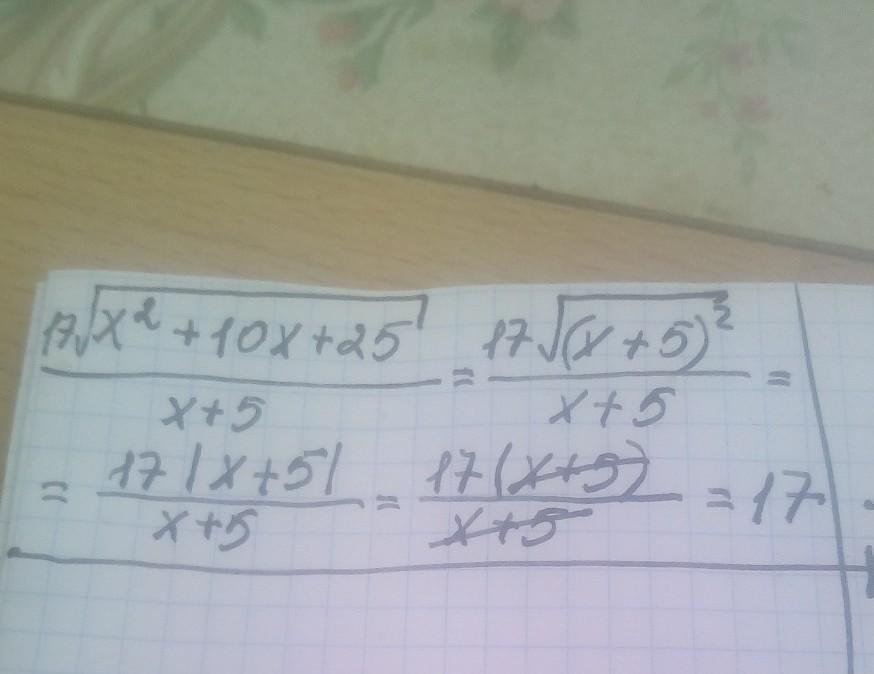 17√(x² + 10x + 25) / (x + 5) = 17√((x + 5)²) / (x + 5) =
= 17|x + 5| / (x + 5) = 17(x + 5) / (x + 5) = 17